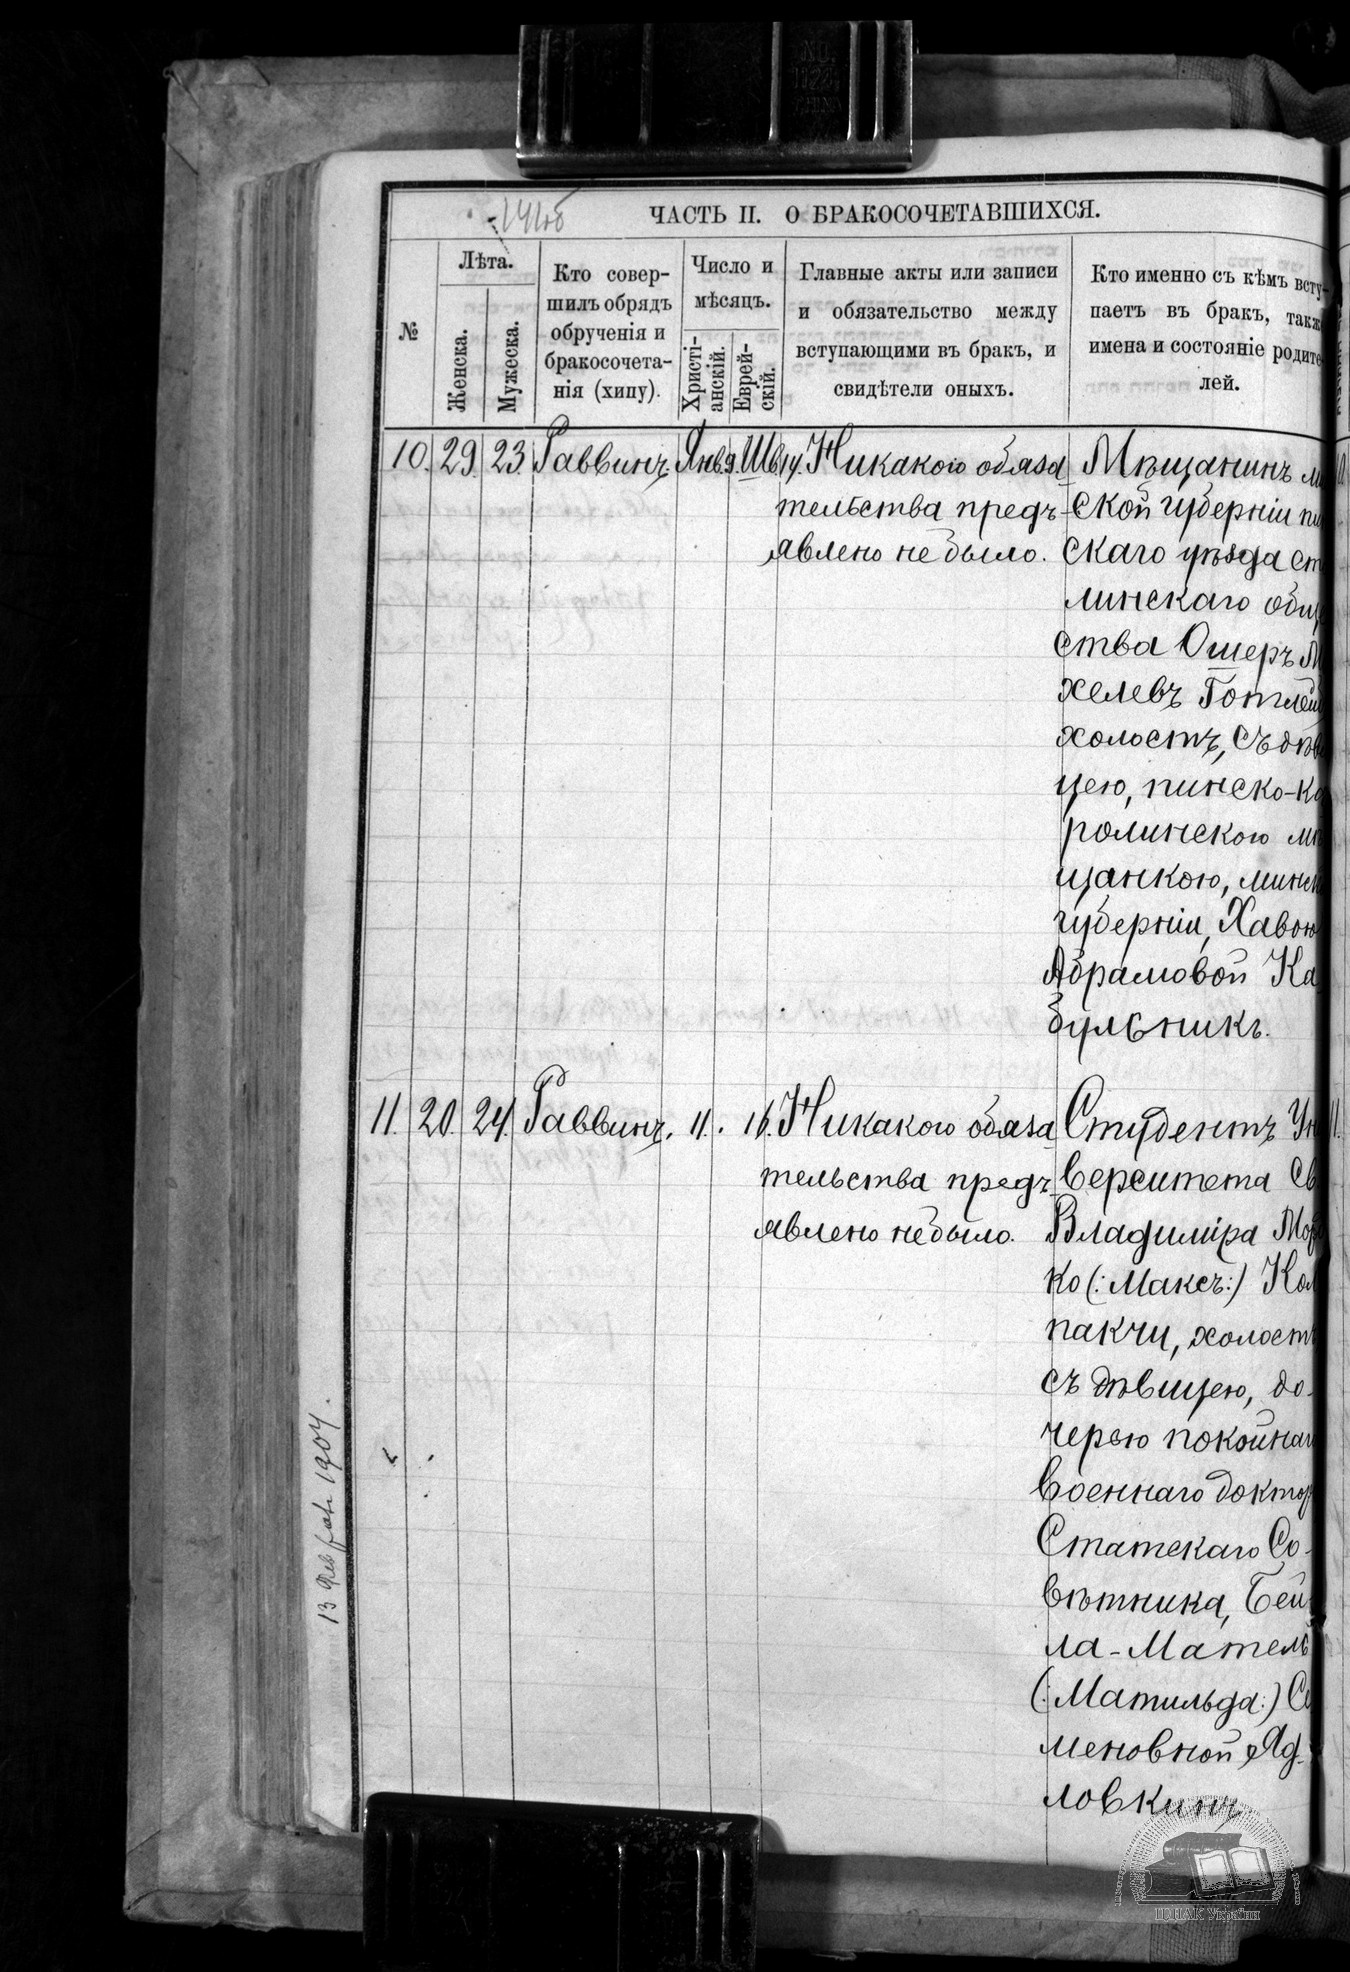 ЧАСТЬ II. О БРАКОСОЧЕТАВШИХСЯ.
№
Лѣта.
Женска.
Мужеска.
Кто совер-
шилъ обрядъ
обрученія и
бракосочета-
нія (хипу).
Число и
мѣсяцъ.
Христі-
анскій.
Еврей-
скій.
Главные акты или записи
и обязательство между
вступающими въ бракъ, и
свидѣтели оныхъ.
Кто именно съ кѣмъ всту-
паетъ въ бракъ, такж
имена и состояніе родите-
лей.
10. 29. 23. Раввинъ. Янв. 9. Шв. 14. Никакого обяза
тельства предъ-
явлено не было.
Мѣщанинъ м
ской губерніи пи
скаго уѣзда ст
линскаго общ
ства Ошеръ М
хелевъ Готлей
холостъ, съ дѣв
цею, пинско-ка
ролинскою мѣ
щанкою, минск
губерніи, Хавою
Абрамовой Ка
бульникъ.
11. 20. 24. Раввинъ. 11. 16. Никакого обяза
тельства предъ-
явлено не было.
Студентъ Уни
верситета Св.
Владиміра Мор
ко (: Максъ :) Кол
пакчи, холостъ
съ дѣвицею, до-
черью покойнаг
военнаго доктор
Статскаго Со-
вѣтника, Бей
ла-Матель
(: Матильда :) Се
меновной Яд-
ловкинъ
11.
13 февраля 1904.
ЦДІАК України